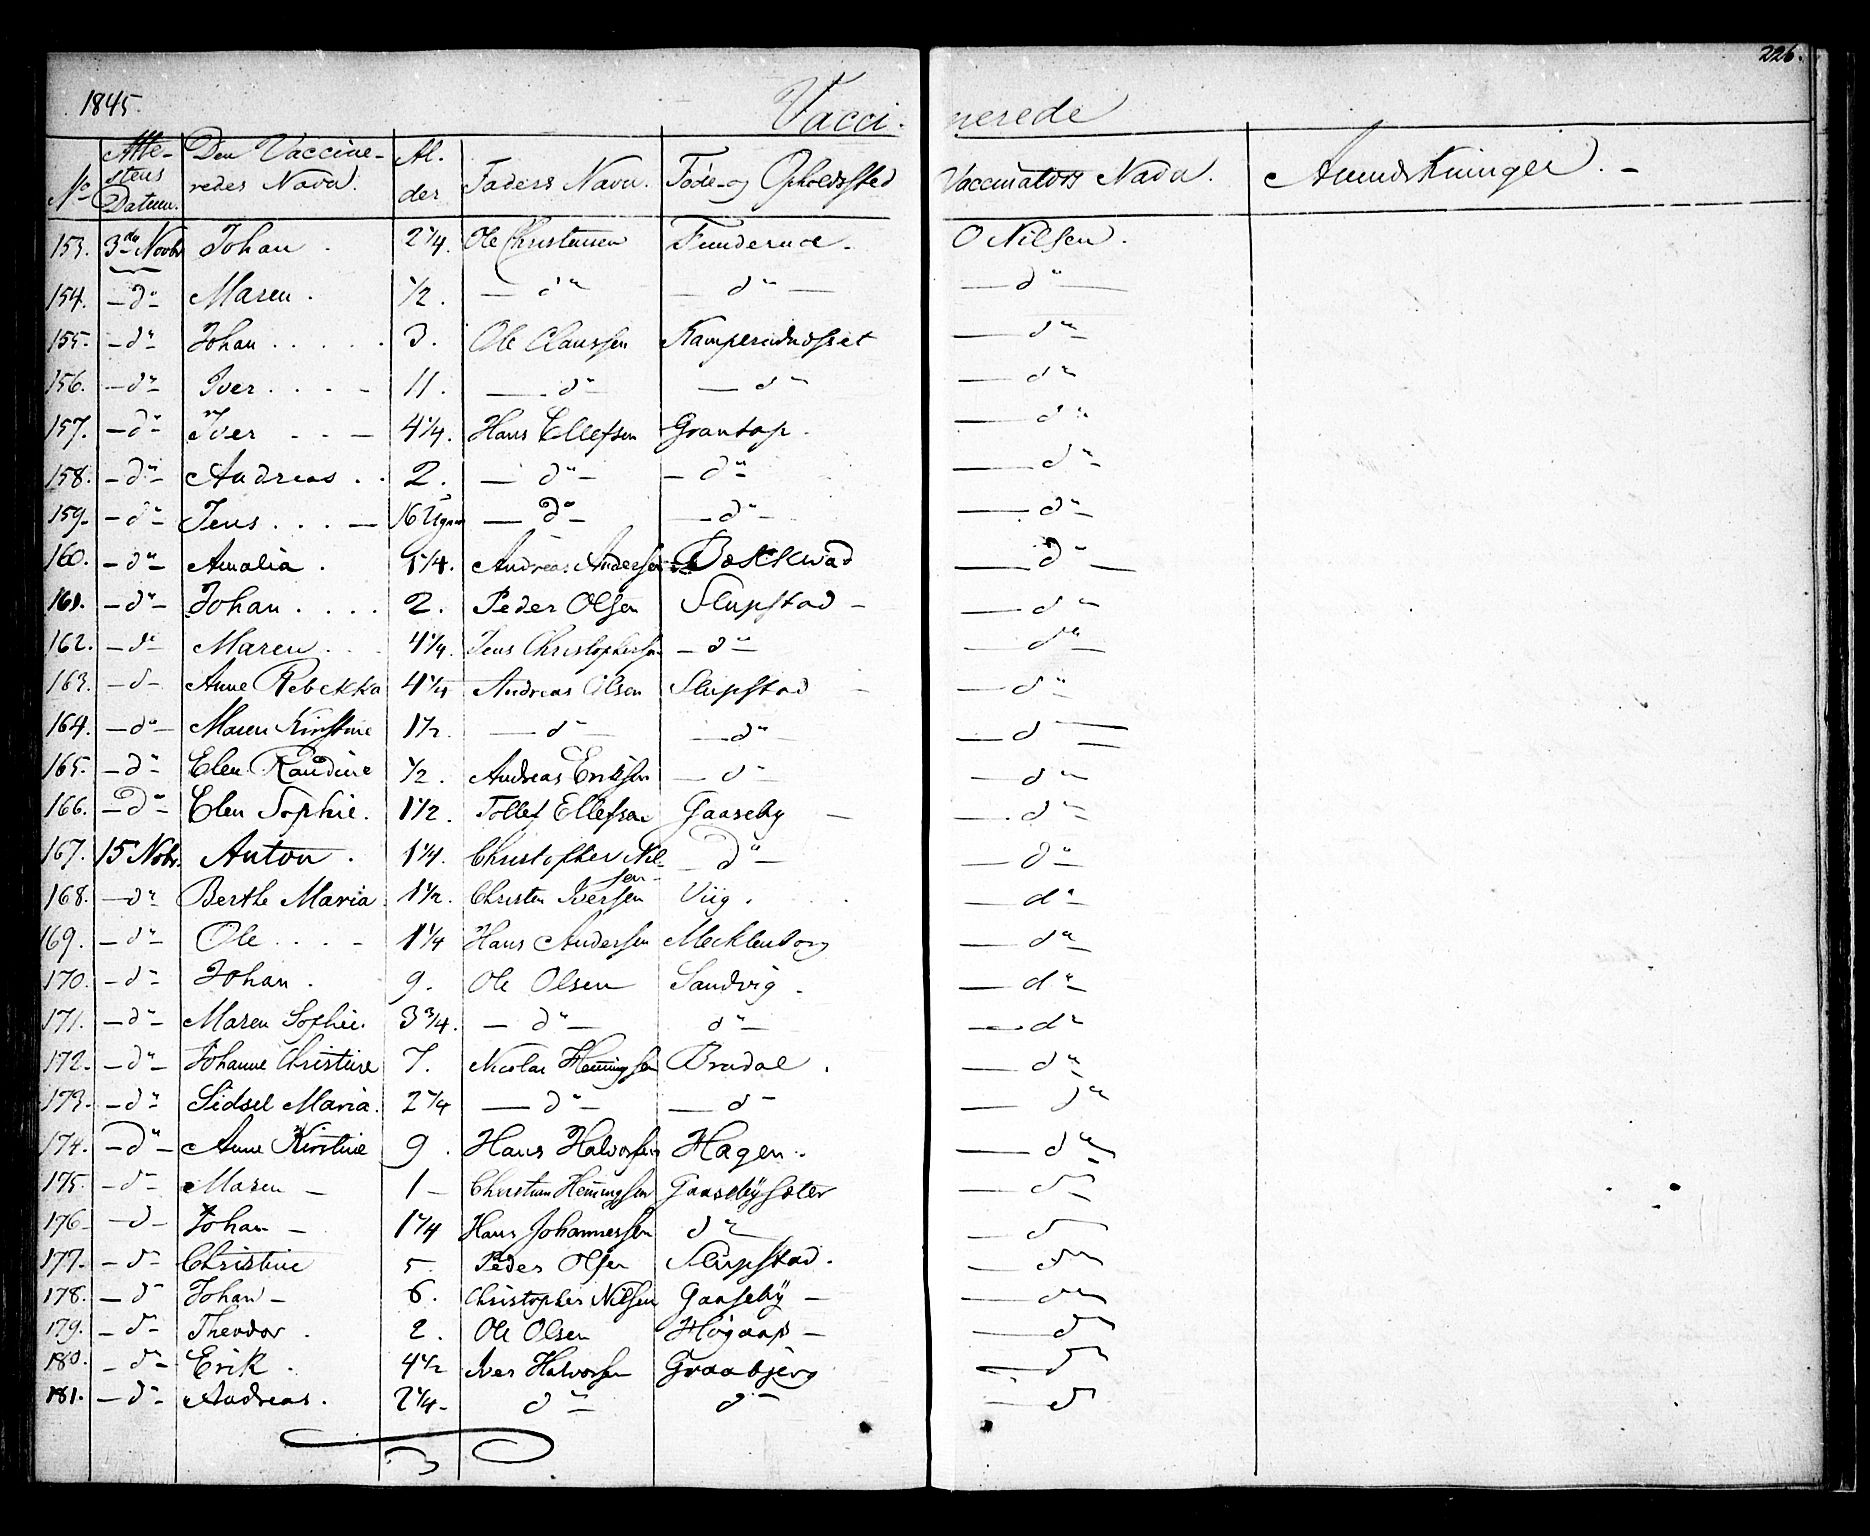 226.
1845. Vaccinerede
No Atte-stens Datum. Den Vaccine-redes Navn. Al-der Faders Navn. Føde- og Opholdssted Vaccinators Navn. Anmærkninger. -
153. 3die Novbr Johan . 2 1/4. Ole Christensen Funderud - O Nilsen .
154. - do - Maren . 1/2. - do - - do - - do -
155. - do - Johan . . . . . 3. Ole Claussen Kamperudhosset - do -
156. - do - Iver . . . - 11. - do - - do - - do -
157. - do - Iver - - - 4 1/4. Hans Ellefsen Grantop . - do -
158. - do - Andreas . . 2. - do - - do - - do -
159. - do - Jens . . . - 16 Uger - do - - do - - do -
160. - do - Amalia . 1 1/4. Andreas Andersen Bækkevad - do -
161. - do - Johan . . . . 2. Peder Olsen Slupstad - - do -
162. - do - Maren . . 4 1/4. Jens Christophersen - do - - do -
163. - do - Anne Rebekka 4 1/4 Andreas Olsen Slupstad - - do -
164. - do - Maren Kirstine 1 1/2. - do - - do - - do -
165. - do - Elen Randine 1/2. Andreas Eriksen - do - - do -
166. - do - Elen Sophie. 1 1/2. Tollef Ellefsen Gaaseby - - do -
167. 15 Nobr. Anton . 1 1/4. Christopher Nil-sen - do - - do -
168. - do - Berthe Maria 1 1/2. Christen Iversen Viig . - do -
169. - do - Ole . . . - 1 1/4 Hans Andersen Mecklenborg - do -
170. - do - Johan . 9. Ole Olsen Sandvig . - do -
171. - do - Maren Sophie. 3 3/4. - do - do - - do -
172. - do - Johanne Christine 7. Nicolai Hemingsen Bradal . - do -
173. - do - Sidsel Maria. 2 1/4 - do - - do - - do -
174. - do - Anne Kirstine 9 . Hans Halvorsen Hagen . - do -
175. - do - Maren - 1 - Christian Hemingsen Gaasebysæter - do -
176. - do - Johan - 1 1/4 Hans Johannessen do - - do -
177. - do - Christine 5 . Peder Olsen Slupstad . - do -
178. - do Johan - 6 . Christopher Nilsen Gaaseby - - do -
179. - do - Theodor . 2 . Ole Olsen - - do -
180. - do - Erik . 4 1/2 Iver Halvorsen Graabjerg - do -
181. - do - Andreas . 2 1/4 - do - do - - do